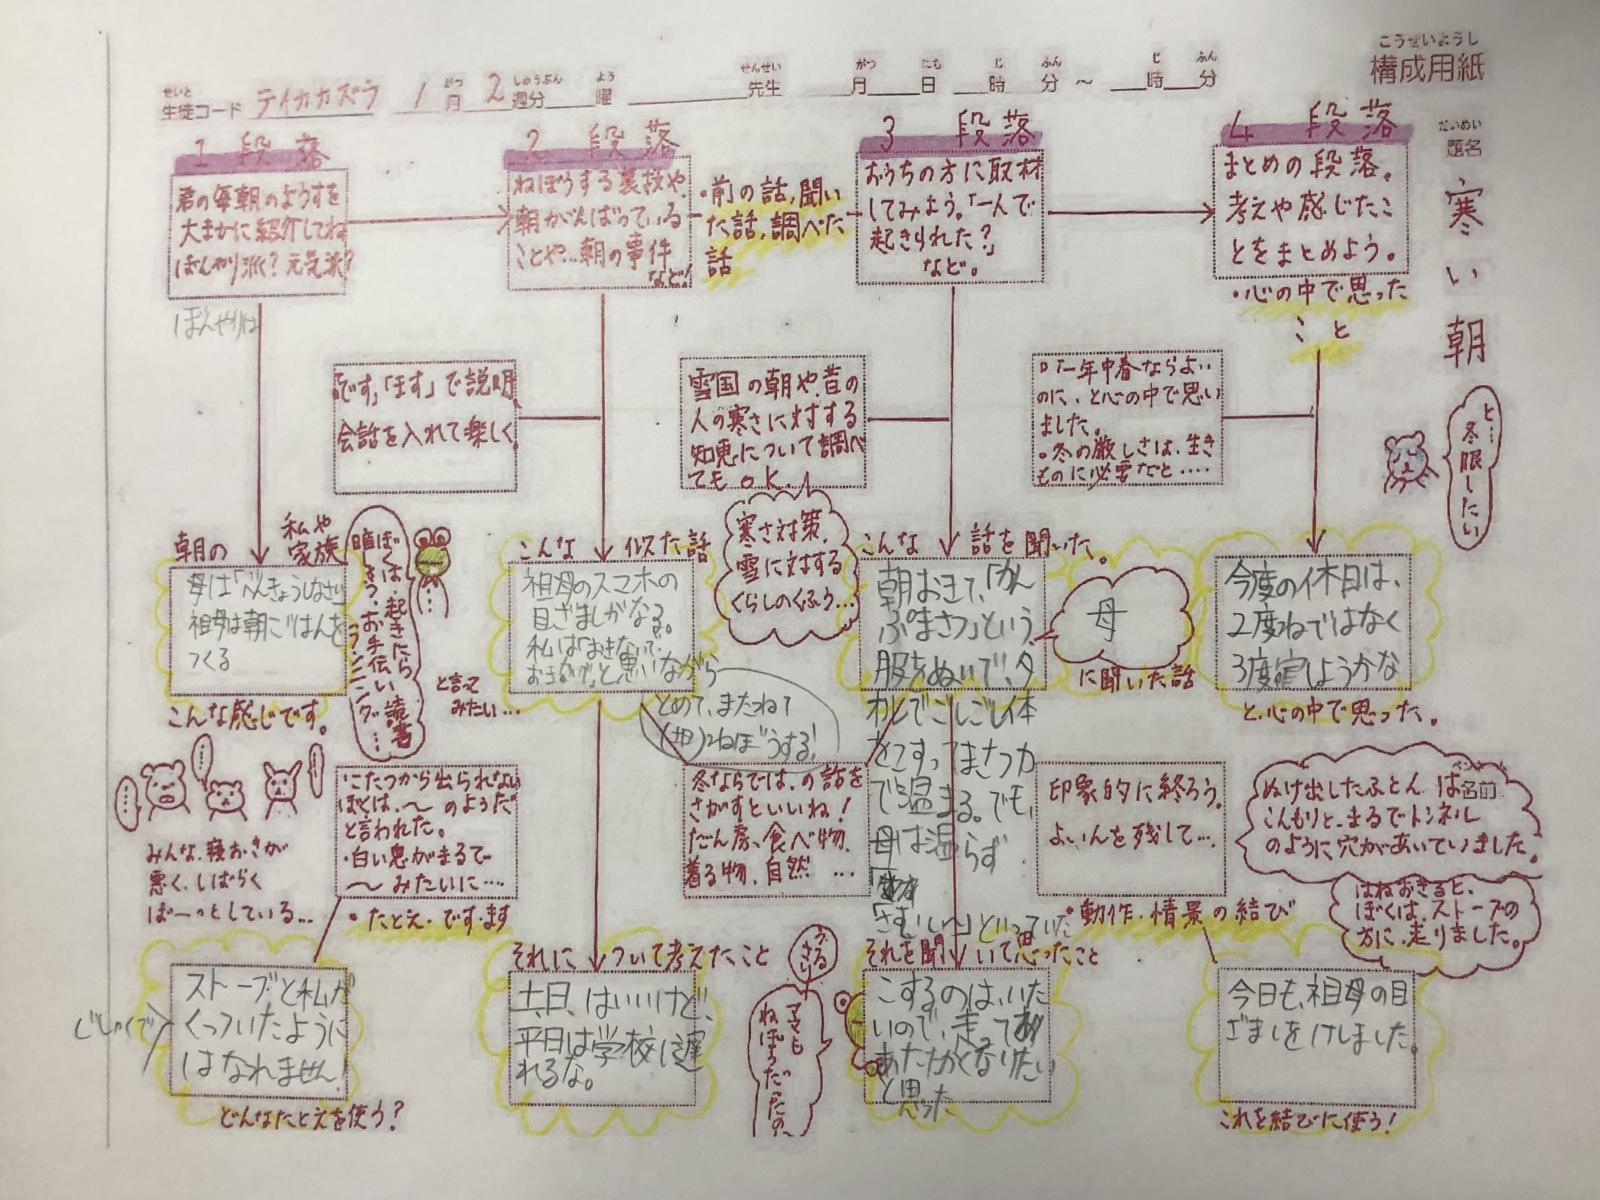 こうせいようし
構成用紙
せいと
生徒コード テイカカズラ 1月 2週分 曜 先生 月 日 時 分 ~ 時 分
がつ しゅうぶん よう せんせい がつ にち じ ふん じ ふん
だいめい
題名
寒い朝
1 段落
君の毎朝のようすを
大まかに紹介してね
ぼんやり派?元気派?
ぼんやりは
2 段落
ねぼうする裏技や、
朝がんばっている
ことや…朝の事件
など!
・前の話,聞い
た話,調べた
話
3 段落
おうちの方に取材
してみよう。「一人で
起きられた?」
など。
4 段落
まとめの段落。
考えや感じたこ
とをまとめよう。
・心の中で思った
こと
「です」「ます」で説明
会話を入れて楽しく。
雪国の朝や、昔の
人の寒さに対する
知恵について調べ
てもOK.
「一年中春ならよい
のに、と心の中で思い
ました。
。冬の厳しさは、生き
ものに必要だと……
と…
冬眠したい
朝の
私や
家族
母は「べんきょうしなさい」
祖母は朝ごはんを
つくる
こんな感じです。
ぼくは、起きたら
お手伝い、読書
ランニング…
と言って
みたい…
こんな 似た話
祖母のスマホの
目ざましがなる。
私は「おきないで、
と思いながら
とめて、またねて
ねぼうする!
寒さ対策、
雪に対する
くらしのくふう…
こんな 話を聞いた。
朝おきて、「かん
ぷまさつ」という、
服をぬいで、タ
ワシでごしごし体
をこすってまさつ力
で温まる。でも、
母は温らず
「さむいし〜」といっていた
母
に聞いた話
今度の休日は、
2度ねではなく
3度寝しようかな
と、心の中で思った。
みんな、寝おきが
悪く、しばらく
ぼーっとしている…
こたつから出られない
ぼくは、〜のようだ
と言われた。
・白い息がまるで
〜みたいに…
・たとえ・です・ます
冬ならでは、の話を
さがすといいね!
だん房、食べ物、
着る物、自然…
印象的に終ろう。
よいんを残して…
・動作・情景の結び
ぬけ出したふとんは
名前
こんもりと、まるでトンネル
のように穴があいていました。
はねおきると、
ぼくは、ストーブの
方に、走りました。
じしゃくで
ストーブと私が
くっついたように
はなれません!
どんなたとえを使う?
それに ついて考えたこと
土、日、はいいけど、
平日は学校に遅
れるな。
うるさい
ママも
ねぼうだったの〜
それを聞いて思ったこと
こするのは、いた
いので、走って
あたたかくなりたい
と思った
今日も、祖母の目
ざましをけしました。
これを結びに使う!